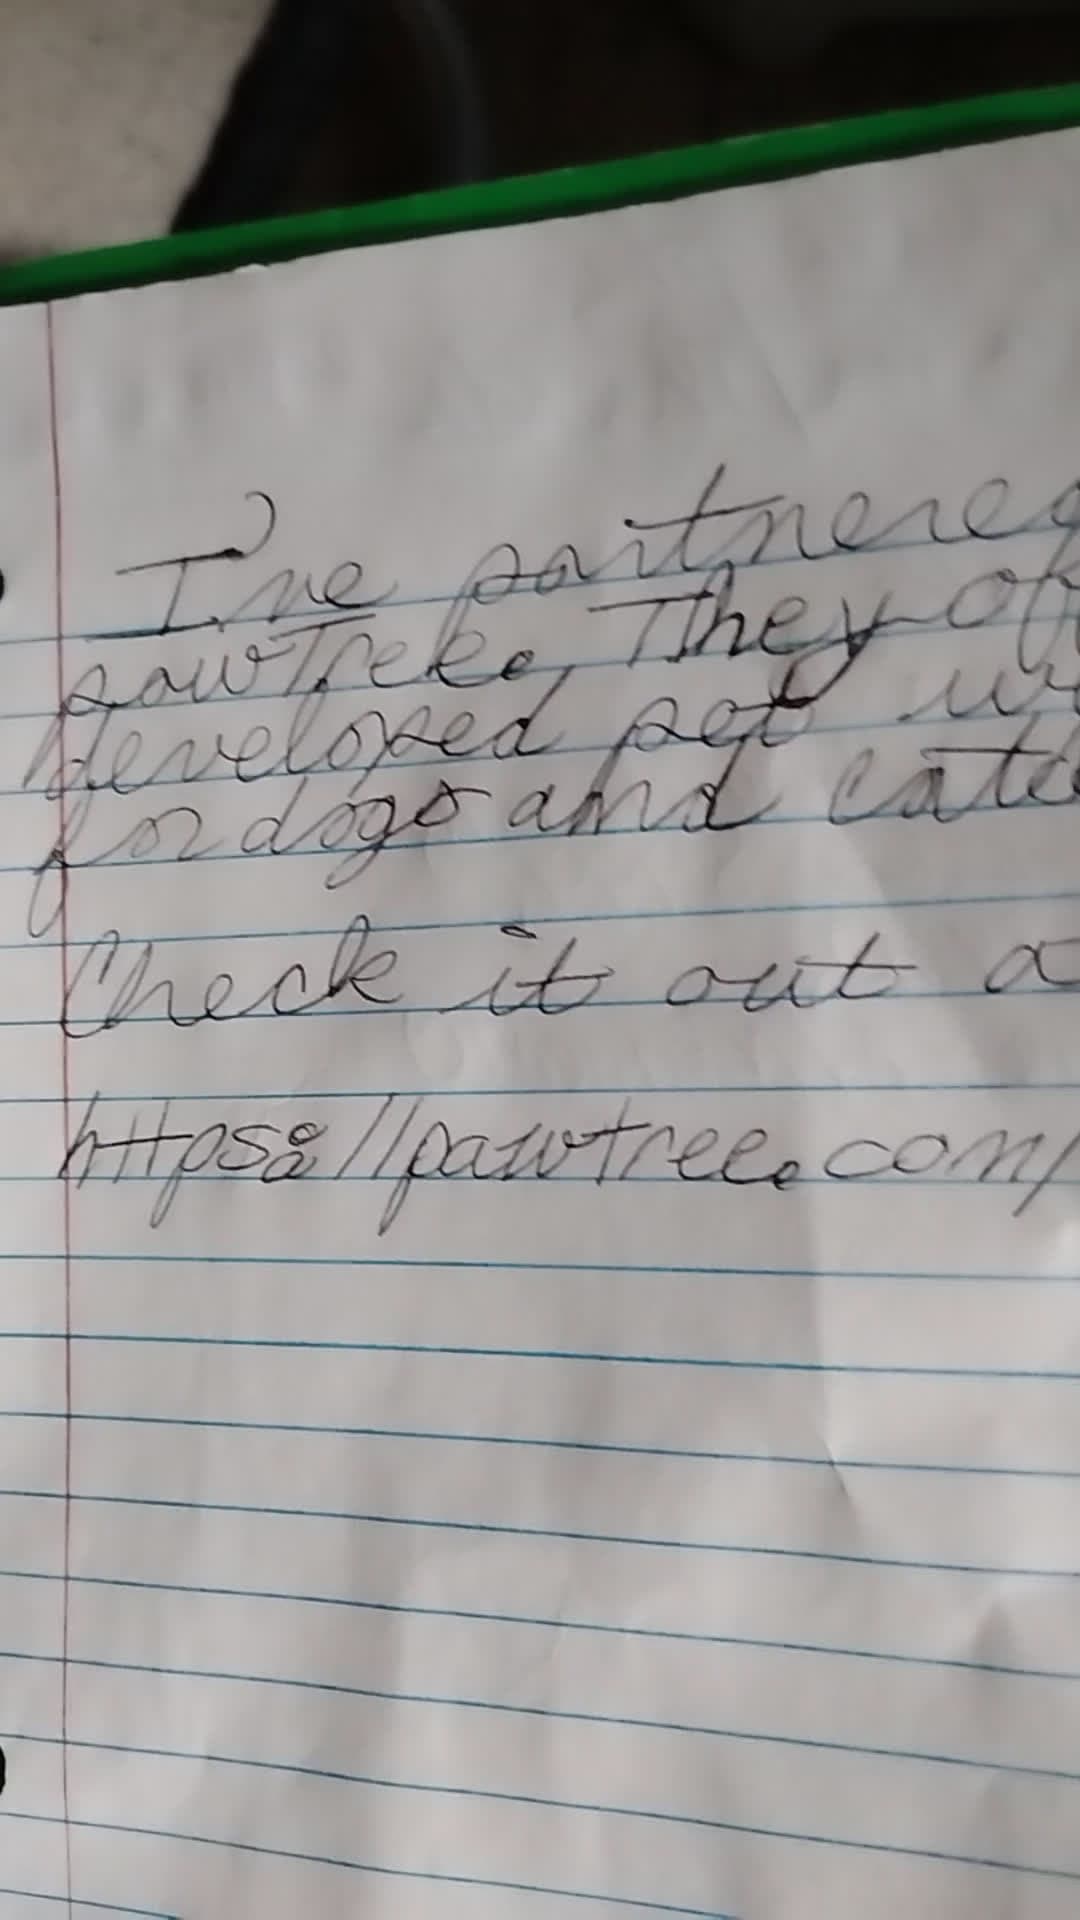 I've partnered
pawTree. They of
developed pet we
for dogs and cats
Check it out a
https://pawtree.com/